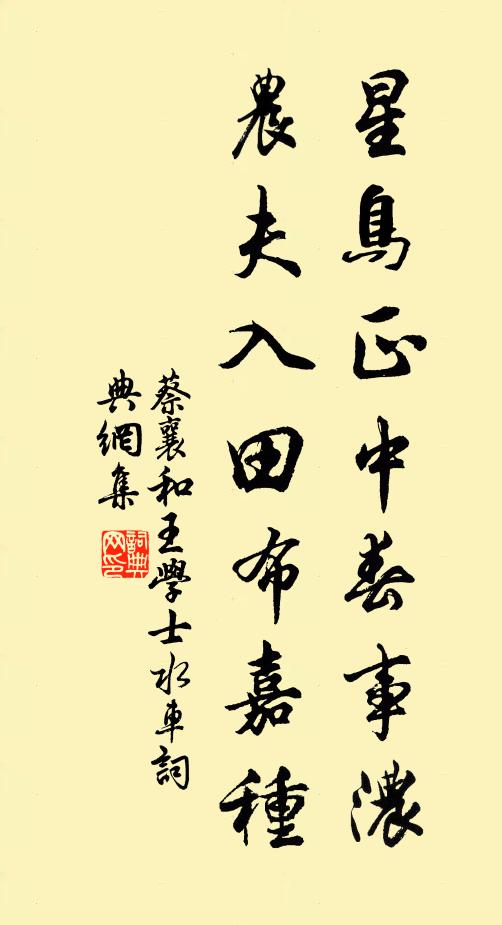 星鳥正中春事濃
農夫入田布嘉種
蔡襄和王學士水車詞
典網集
詞典網印